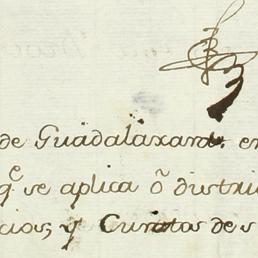 de Guadalaxara en
qᵉ se aplica ô distri
cios; y Curatos de s